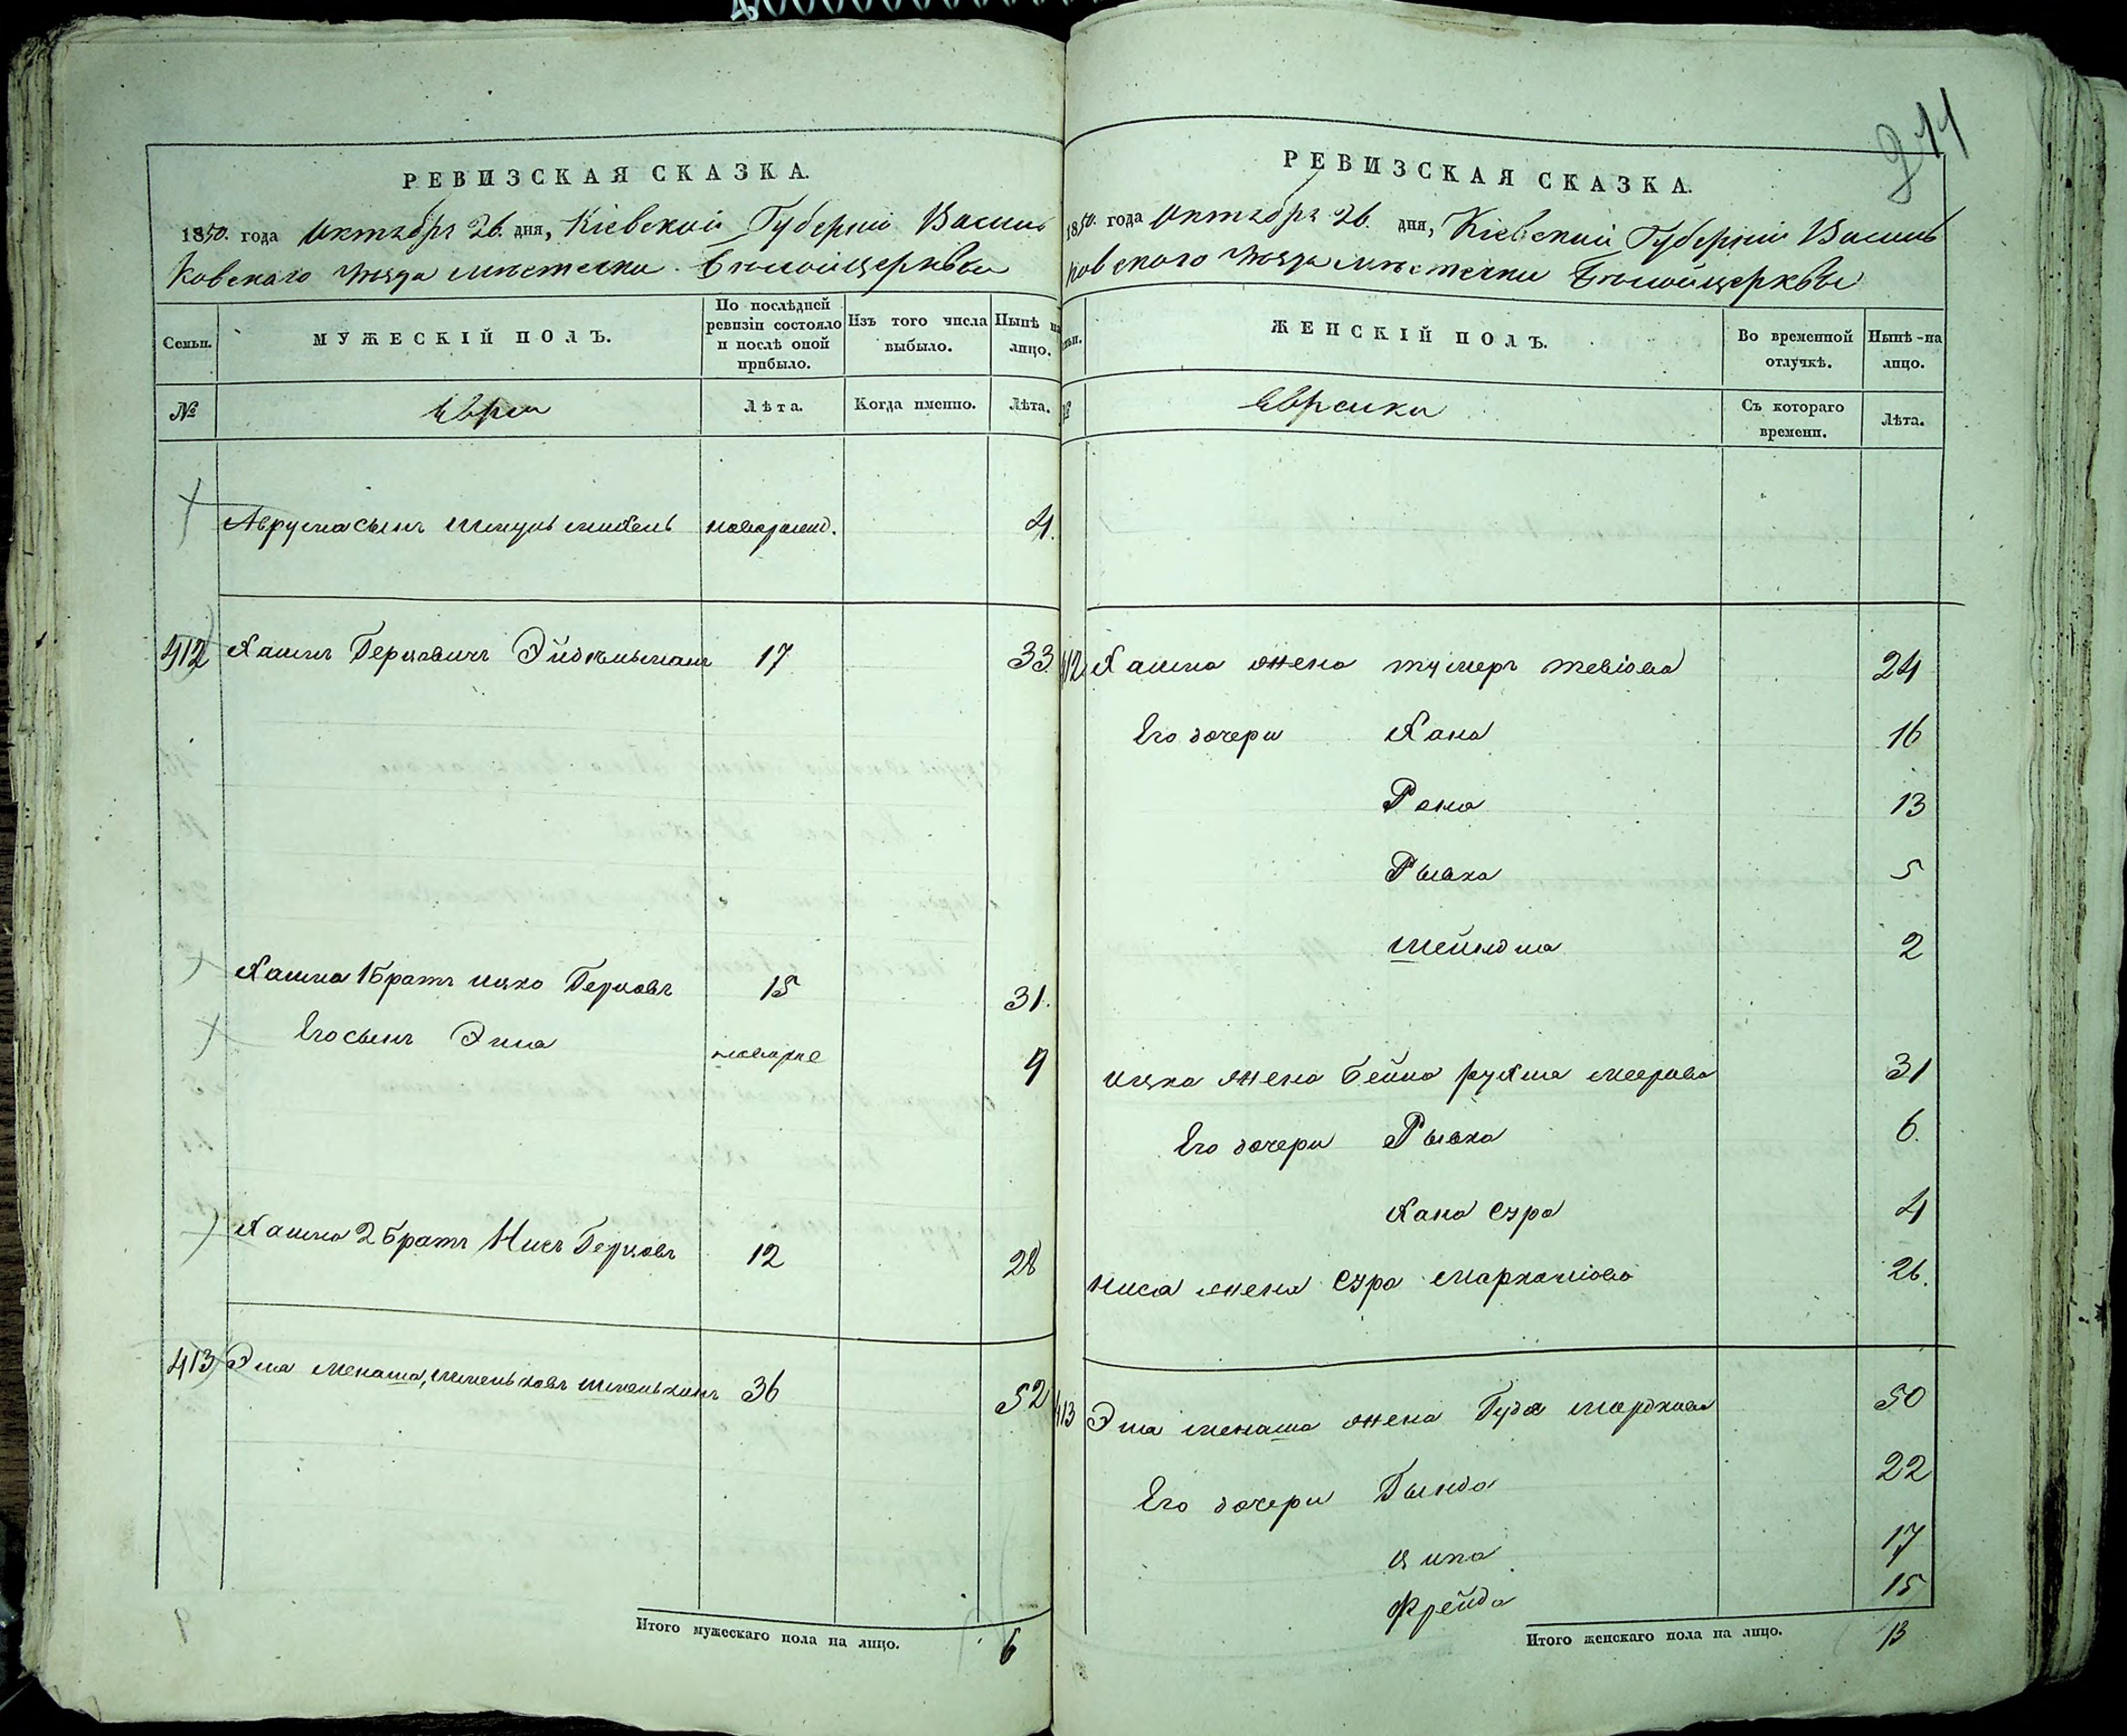 811
РЕВИЗСКАЯ СКАЗКА.
1850. года Октября 26. дня, Кіевской Губерніи Василь
ковскаго Уѣзда мѣстечка Бѣлойцеркви
Семьи. МУЖЕСКІЙ ПОЛЪ. По послѣдней ревизіи состояло и послѣ оной прибыло. Изъ того числа выбыло. Нынѣ на лицо.
№ Евреи Лѣта. Когда именно. Лѣта.
Аврума сынъ новорожд. 4.
412 Хаимъ Берковичъ 17 33
Хаима 1 братъ Ицко Берковъ 15 31.
Его сынъ Эля новорж 9
Хаима 2 братъ Нисъ Берковъ 12 28
413 Эля Менаша, 36 52
Итого мужескаго пола на лицо. 6
РЕВИЗСКАЯ СКАЗКА.
1850. года Октября 26. дня, Кіевской Губерніи Василь
ковскаго Уѣзда мѣстечка Бѣлойцеркви
Семьи. ЖЕНСКІЙ ПОЛЪ. Во временной отлучкѣ. Нынѣ на лицо.
№ Еврейки Съ котораго времени. Лѣта.
412 Хаима жена 24
Его дочери Хана 16
13
Рывка 5
Шейндля 2
Ицка жена Бейла Рухля Меерова 31
Его дочери Рывка 6.
Хана Сура 4
Ниса жена Сура 26.
413 Эля Менаша жена Мордкова 50
Его дочери Бинда 22
Ципа 17
Фрейда 15
Итого женскаго пола на лицо. 13